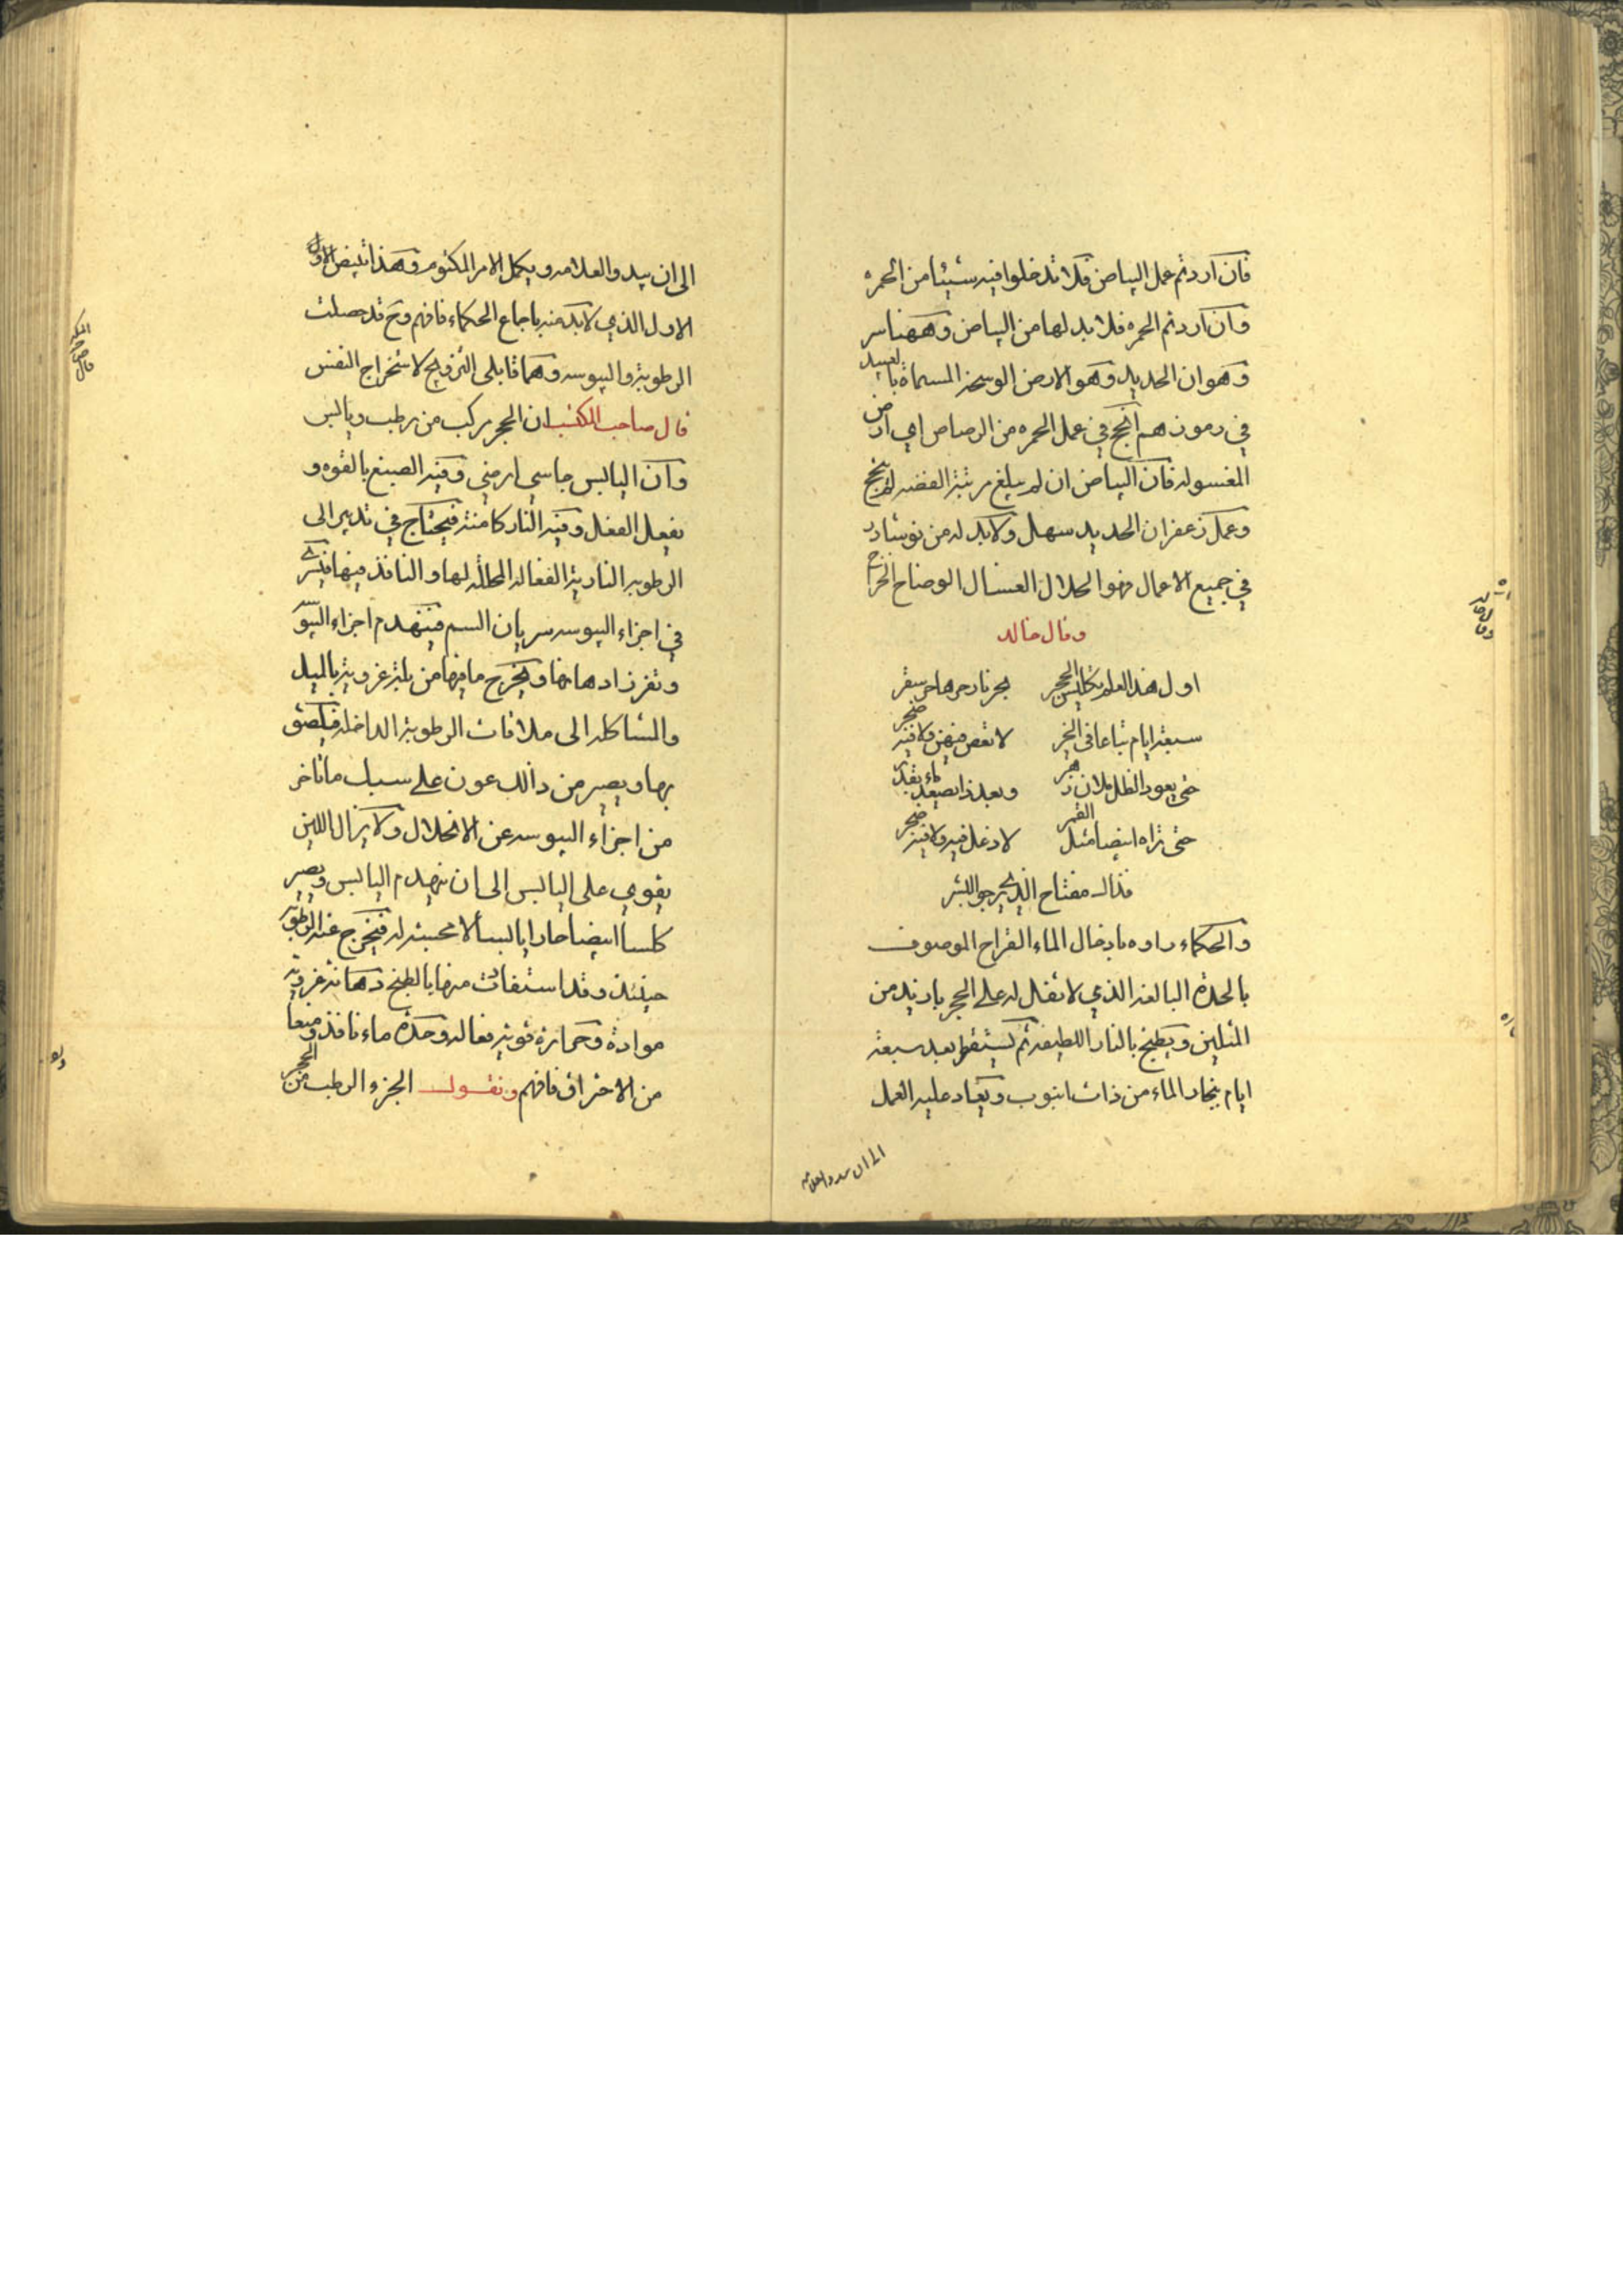 فان اردتم عمل البياض فلا تدخلوا فيه شيئا من الحمره
وان اردتم الحمره فلا بد لها من البياض وههنا سر
وهو ان الحديد وهو الارض الوسخة المسماة بالعبيد
في رموزهم انجح في عمل الحمره من الرصاص اي ارض
المغسوله فان البياض ان لم يبلغ مرتبة الفضه لم ينجح
وعمل زعفران الحديد سهل ولا بد له من نوشادر
في جميع الاعمال فهو الحلال الغسال الوضاح الخراج
وقال خالد
اول هذا العلم تكليس الحجر بحر نار حرها حر سقر
سبعة ايام تباعا في الخبر لا نقص فيهن ولا فيه ضجر
حتى يعود الظل ملان وبعد ذا يصعد ماء بقدر
حتى تراه ابيضا مثل القمر لا دغل فيه ولا فيه ضجر
فذاك مفتاح الذي يرجو البشر
والحكماء بادخال الماء القراح الموصوف
بالحدة البالغه الذي لا ثفل له على الحجر بازيد من
المثلين ويطبخ بالنار اللطيفه ثم يستقطر بعد سبعة
ايام بخار الماء من ذات انبوب ويعاد عليه العمل
الى ان يبدو العلامه
الى ان يبدو العلامه ويكمل الامر المكتوم وهذا تبيض الاول
الاول الذي لا بد منه باجماع الحكماء فافهم وح قد حصلت
الرطوبة واليبوسه وهما قابلي التزويج لاستخراج النفس
قال صاحب المكتسب ان الحجر مركب من رطب ويابس
وان اليابس جاسي ارضي وفيه الصبغ بالقوه و
بفعل الفعل وفيه النار كامنة فيحتاج في تدبير الى
الرطوبه النارية الفعاله المحللة لها والنافذ فيها فيسري
في اجزاء اليبوسه سريان السم فينهدم اجزاء اليبو
وتفرز ادهانها ويخرج ما فيها من بلة غروية بالميل
والمشاكله الى ملاقات الرطوبة الداخله فيلصق
بها ويصير من ذالك عون على سبيل ما تاخر
من اجزاء اليبوسه عن الانحلال ولا يزال اللين
يقوي على اليابس الى ان ينهدم اليابس ويصير
كلسا ابيضا حارا يابسا لا محبسة له فيخرج عنه الرطوبة
حينئذ وقد استفادت منها بالطبخ دهانة غروية
موادة وحمازة قوية فعاله وحدة ماء نافذ ومنعا
من الاحتراق فافهم ونقول الجزء الرطب من الحجر